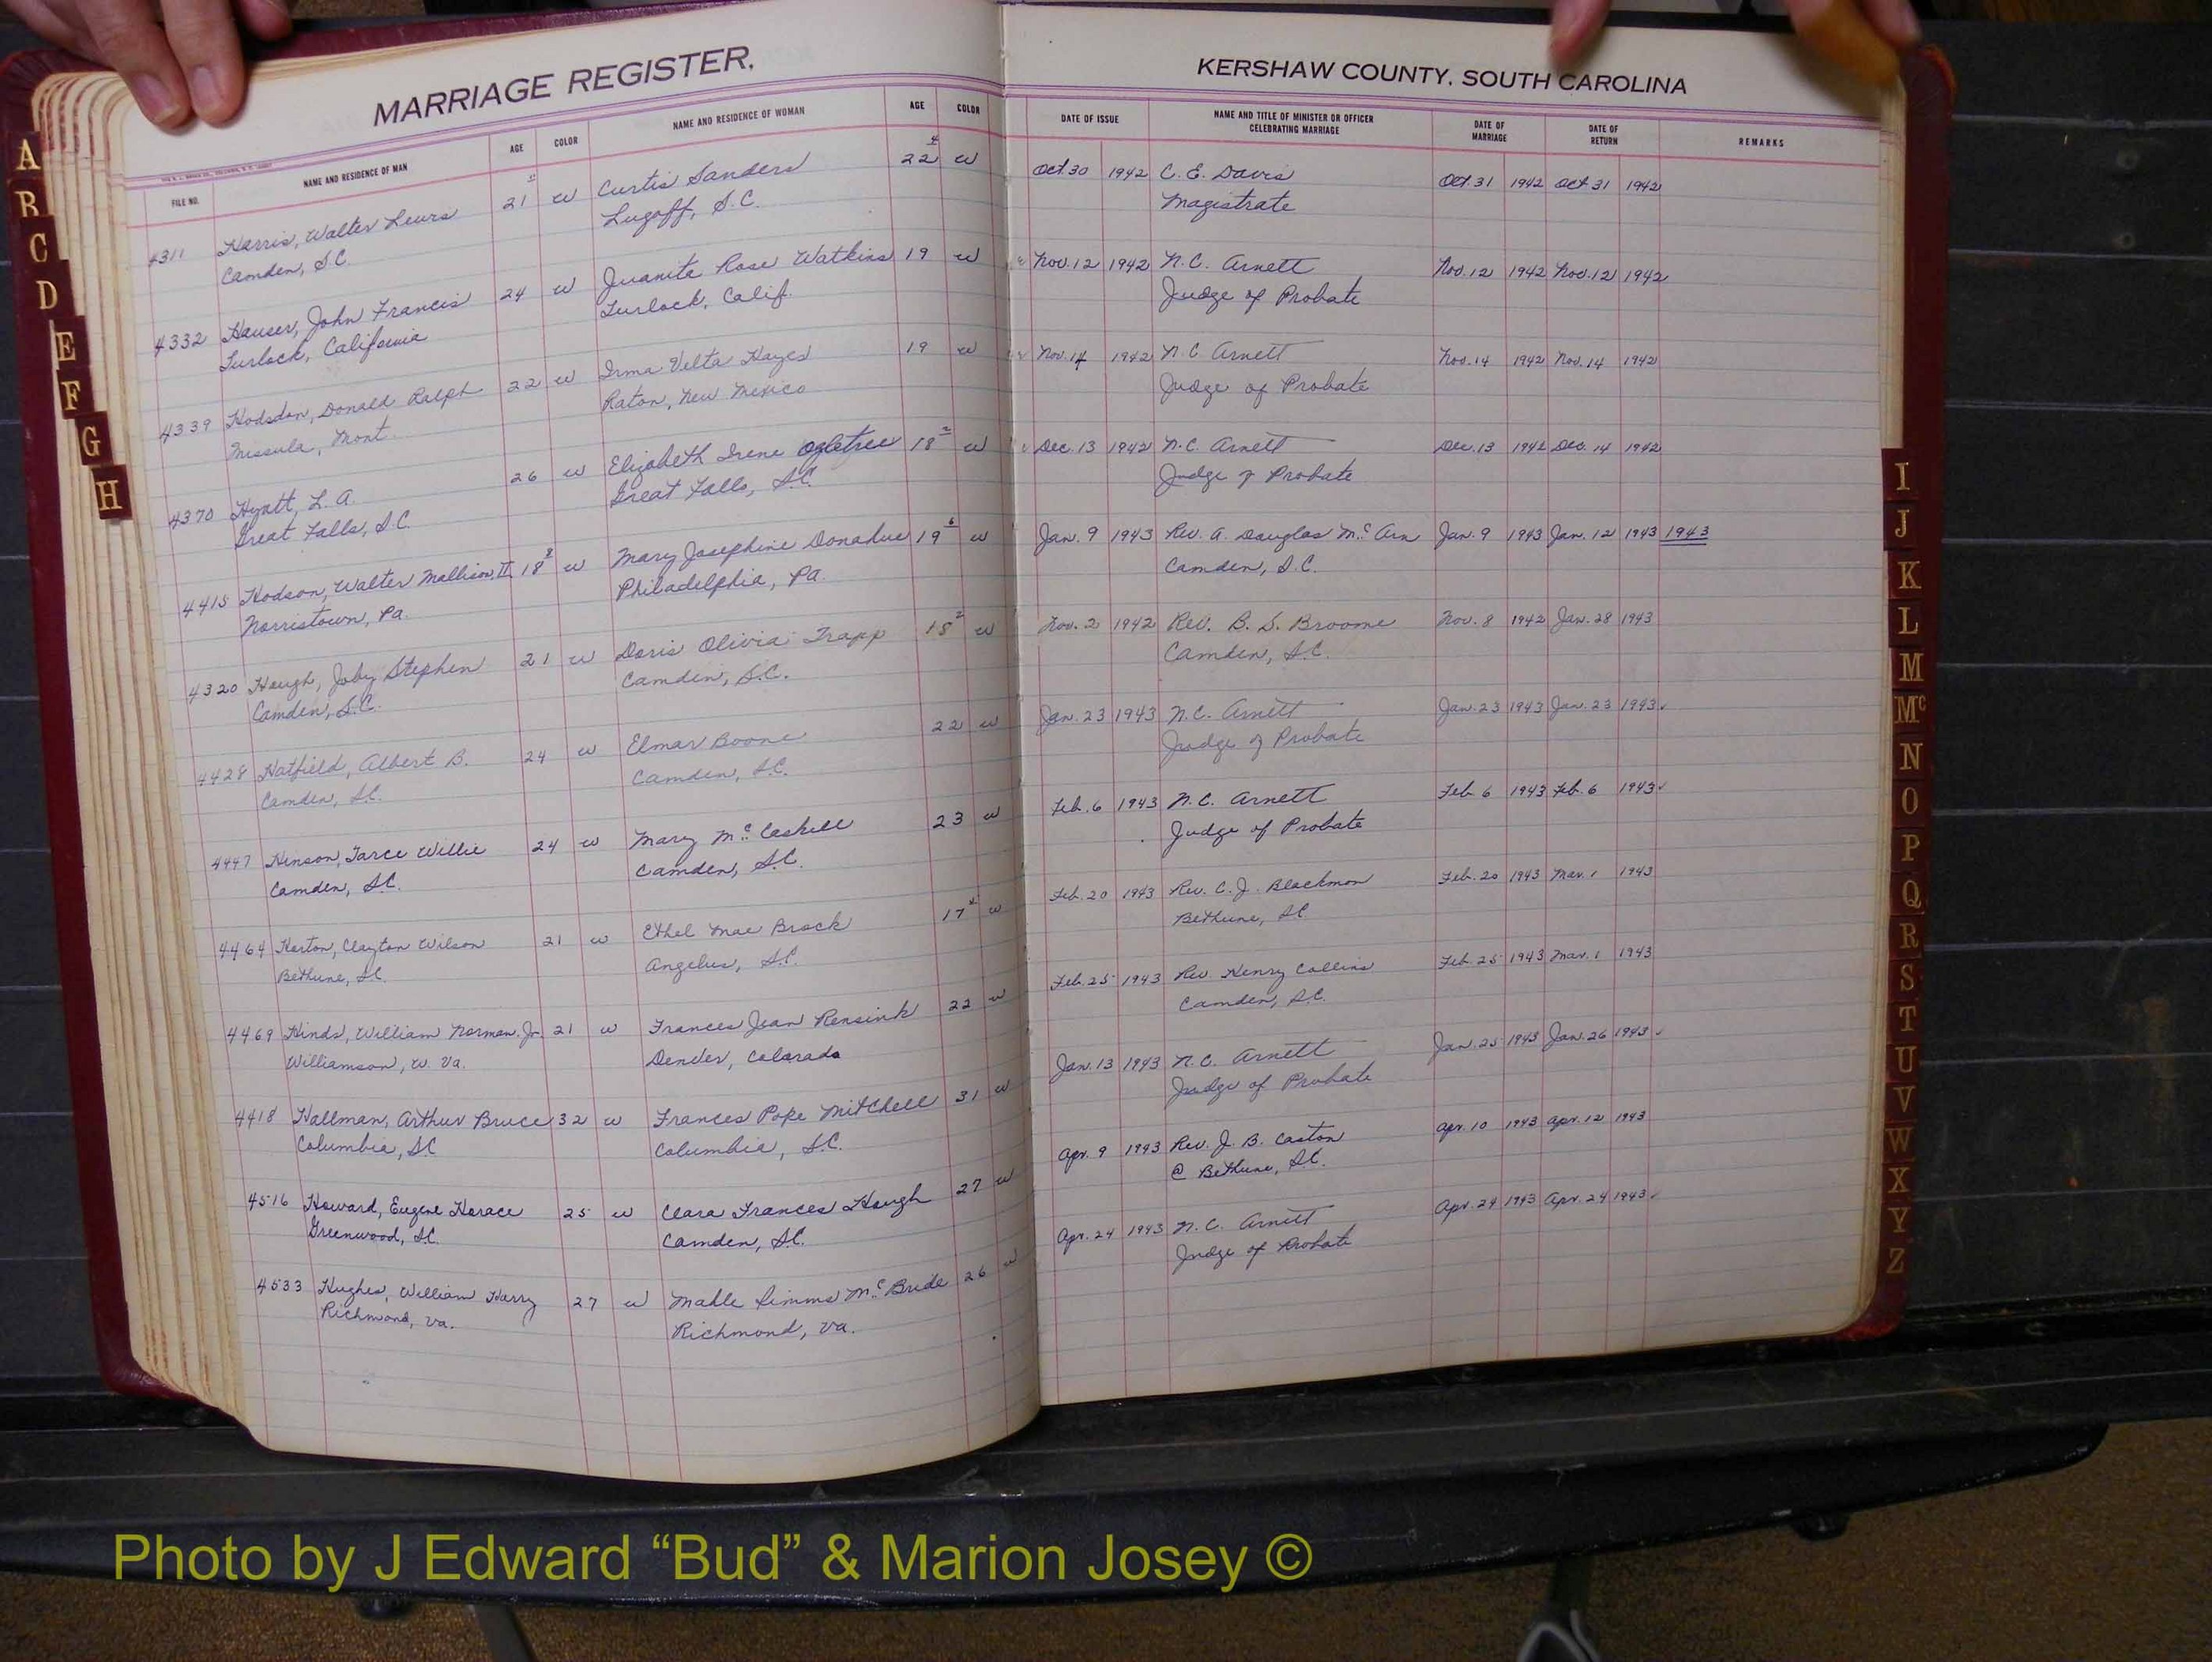 MARRIAGE REGISTER,
KERSHAW COUNTY, SOUTH CAROLINA
FILE NO. NAME AND RESIDENCE OF MAN AGE COLOR NAME AND RESIDENCE OF WOMAN AGE COLOR DATE OF ISSUE NAME AND TITLE OF MINISTER OR OFFICER CELEBRATING MARRIAGE DATE OF MARRIAGE DATE OF RETURN REMARKS
4311 Harris, Walter Lewis 21 w Curtis Sanders 22 w Oct. 30 1942 C. E. Davis Oct. 31 1942 Oct. 31 1942
Camden, S.C. Lugoff, S.C. Magistrate
4332 Hauser, John Francis 24 w Juanita Rose Watkins 19 w Nov. 12 1942 N.C. Arnett Nov. 12 1942 Nov. 12 1942
Turlock, California Turlock, Calif. Judge of Probate
4339 Hodsdon, Donald Ralph 22 w Irma Velta Hayes 19 w Nov. 14 1942 N.C. Arnett Nov. 14 1942 Nov. 14 1942
Missula, Mont. Raton, New Mexico Judge of Probate
4370 Hyatt, L. A. 26 w Elizabeth Irene Ogletree 18 2 w Dec. 13 1942 N.C. Arnett Dec. 13 1942 Dec. 14 1942
Great Falls, S.C. Great Falls, S.C. Judge of Probate
4415 Hodson, Walter Mallison, II 18 8 w Mary Josephine Donahue 19 6 w Jan. 9 1943 Rev. A. Douglas Mc Arn Jan. 9 1943 Jan. 12 1943 1943
Norristown, Pa. Philadelphia, Pa. Camden, S.C.
4320 Hough, Joby Stephen 21 w Doris Olivia Trapp 18 2 w Nov. 2 1942 Rev. B. S. Broome Nov. 8 1942 Jan. 28 1943
Camden, S.C. Camden, S.C. Camden, S.C.
4428 Hatfield, Albert B. 24 w Elmar Boone 22 w Jan. 23 1943 N.C. Arnett Jan. 23 1943 Jan. 23 1943
Camden, S.C. Camden, S.C. Judge of Probate
4447 Hinson, Tarce Willie 24 w Mary Mc Caskill 23 w Feb. 6 1943 N.C. Arnett Feb. 6 1943 Feb. 6 1943
Camden, S.C. Camden, S.C. Judge of Probate
4464 Horton, Clayton Wilson 21 w Ethel Mae Brock 17 w Feb. 20 1943 Rev. C. J. Blackmon Feb. 20 1943 Mar. 1 1943
Bethune, S.C. Angelus, S.C. Bethune, S.C.
4469 Hinds, William Norman, Jr. 21 w Frances Jean Rensink 22 w Feb. 25 1943 Rev. Henry Collins Feb. 25 1943 Mar. 1 1943
Williamson, W. Va. Denver, Colorado Camden, S.C.
4418 Hallman, Arthur Bruce 32 w Frances Pope Mitchell 31 w Jan. 13 1943 N.C. Arnett Jan. 25 1943 Jan. 26 1943
Columbia, S.C. Columbia, S.C. Judge of Probate
4516 Howard, Eugene Horace 25 w Clara Frances Hough 27 w Apr. 9 1943 Rev. J. B. Caston Apr. 10 1943 Apr. 12 1943
Greenwood, S.C. Camden, S.C. @ Bethune, S.C.
4533 Hughes, William Harry 27 w Mable Simms Mc Bride 26 w Apr. 24 1943 N.C. Arnett Apr. 24 1943 Apr. 24 1943
Richmond, Va. Richmond, Va. Judge of Probate
A
B
C
D
E
F
G
H
I
J
K
L
M
Mc
N
O
P
Q
R
S
T
U
V
W
X
Y
Z
Photo by J Edward “Bud” & Marion Josey ©